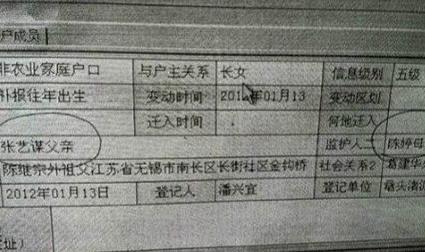 户成员
非农业家庭户口 与户主关系 长女 信息级别 五级
补报往年出生 变动时间 2012年01月13 变动区划
迁入时间 何地迁入
张艺谋父亲 监护人二 陈婷母
陈继宗外祖父江苏省无锡市南长区长街社区金钩桥 社会关系2 葛建华
2012年01月13日 登记人 潘兴宜 登记单位